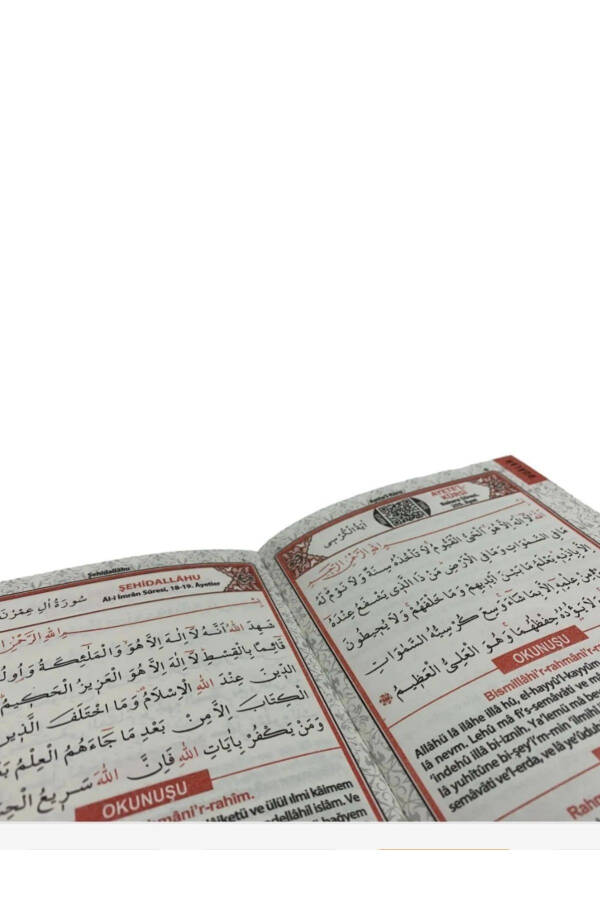 Şehidallâhu
ŞEHİDALLÂHU
Al-i İmrân Sûresi, 18-19. Âyetler
سُورَةُ اٰلِ عِمْرٰنَ
شَهِدَ اللهُ اَنَّهُ لَٓا اِلٰهَ اِلَّا هُوَ وَالْمَلٰٓئِكَةُ وَاُولُ
قَٓائِمًا بِالْقِسْطِ لَٓا اِلٰهَ اِلَّا هُوَ الْعَزِيزُ الْحَكِيمُ
الدِّينَ عِنْدَ اللهِ الْاِسْلَامُ وَمَا اخْتَلَفَ الَّذِينَ
الْكِتَابَ اِلَّا مِنْ بَعْدِ مَا جَٓاءَهُمُ الْعِلْمُ
وَمَنْ يَكْفُرْ بِاٰيَاتِ اللهِ فَاِنَّ اللهَ سَرِيعُ
OKUNUŞU
mâni'r-rahîm.
lâiketü ve ülül ılmi kâimem
ndellâhil islâm. Ve
bağyem
Ayete'l Kürsi
AYETE'L
KÜRSİ
Bakara Sûresi,
255. Âyet
اٰيَةُ الْكُرْسِى
اَللهُ لَٓا اِلٰهَ اِلَّا هُوَ اَلْحَىُّ الْقَيُّومُ لَا تَأْخُذُهُ سِنَةٌ وَلَا نَوْمٌ لَهُ
مَا فِى السَّمٰوَاتِ وَمَا فِى الْاَرْضِ مَنْ ذَا الَّذِى يَشْفَعُ عِنْدَهُ
اِلَّا بِاِذْنِهِ يَعْلَمُ مَا بَيْنَ اَيْدِيهِمْ وَمَا خَلْفَهُمْ وَلَا يُحِيطُونَ
بِشَىْءٍ مِنْ عِلْمِهِ اِلَّا بِمَا شَٓاءَ وَسِعَ كُرْسِيُّهُ السَّمٰوَاتِ
وَلَا يَؤُدُهُ حِفْظُهُمَا وَهُوَ الْعَلِىُّ الْعَظِيمُ
OKUNUŞU
Bismillâhi'r-rahmâni'r-ra
Allâhü lâ ilâhe illâ hû, el-hayyü'l-kayyûm
lâ nevm. Lehû mâ fi's-semâvâti ve m
'indehû illâ bi-iznih. Ya'lemü mâ be
lâ yuhîtûne bi-şey'i'm-min 'ilmihî
semâvâti ve'l-erda, ve lâ ye'ûduh
Rahm